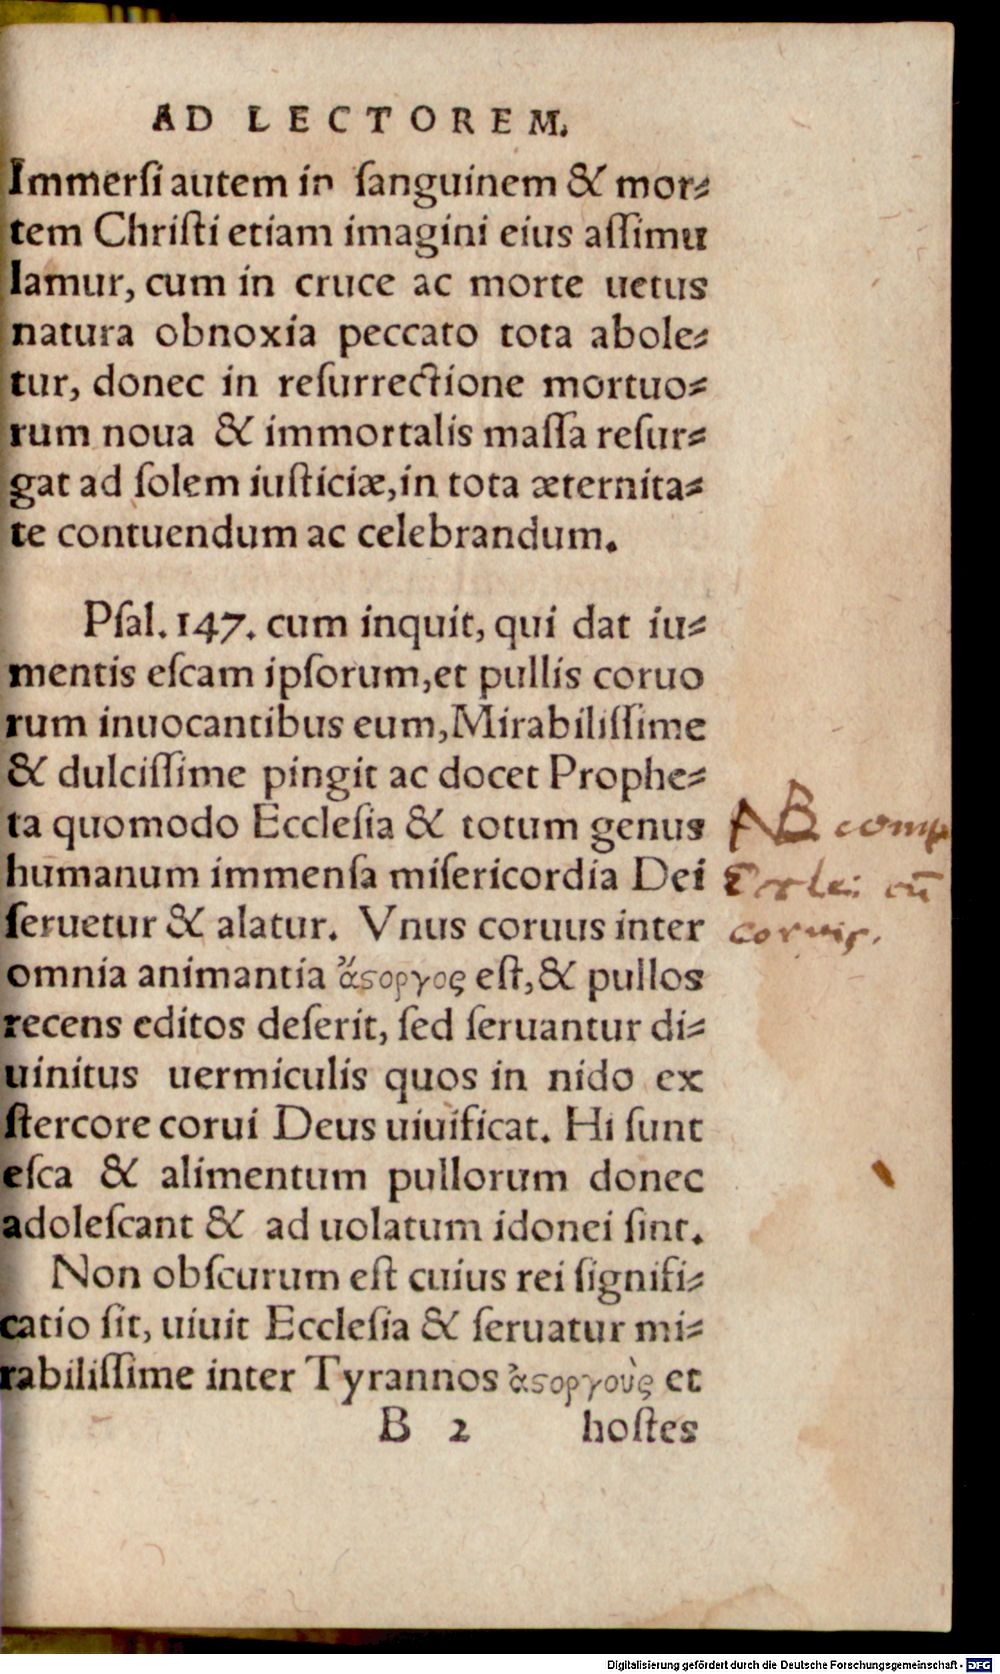 AD LECTOREM.
Immersi autem in sanguinem & mor⸗
tem Christi etiam imagini eius assimu
lamur, cum in cruce ac morte uetus
natura obnoxia peccato tota abole⸗
tur, donec in resurrectione mortuo⸗
rum noua & immortalis massa resur⸗
gat ad solem iusticiæ, in tota æternita⸗
te contuendum ac celebrandum.
Psal. 147. cum inquit, qui dat iu⸗
mentis escam ipsorum, et pullis coruo
rum inuocantibus eum, Mirabilissime
& dulcissime pingit ac docet Prophe⸗
ta quomodo Ecclesia & totum genus
humanum immensa misericordia Dei
seruetur & alatur. Vnus coruus inter
omnia animantia ἄϛοργος est, & pullos
recens editos deserit, sed seruantur di⸗
uinitus uermiculis quos in nido ex
stercore corui Deus uiuificat. Hi sunt
esca & alimentum pullorum donec
adolescant & ad uolatum idonei sint.
Non obscurum est cuius rei signifi⸗
catio sit, uiuit Ecclesia & seruatur mi⸗
rabilissime inter Tyrannos ἀϛοργοὺς et
B 2 hostes
NB comp
cū
corvis.
Digitalisierung gefördert durch die Deutsche Forschungsgemeinschaft - DFG